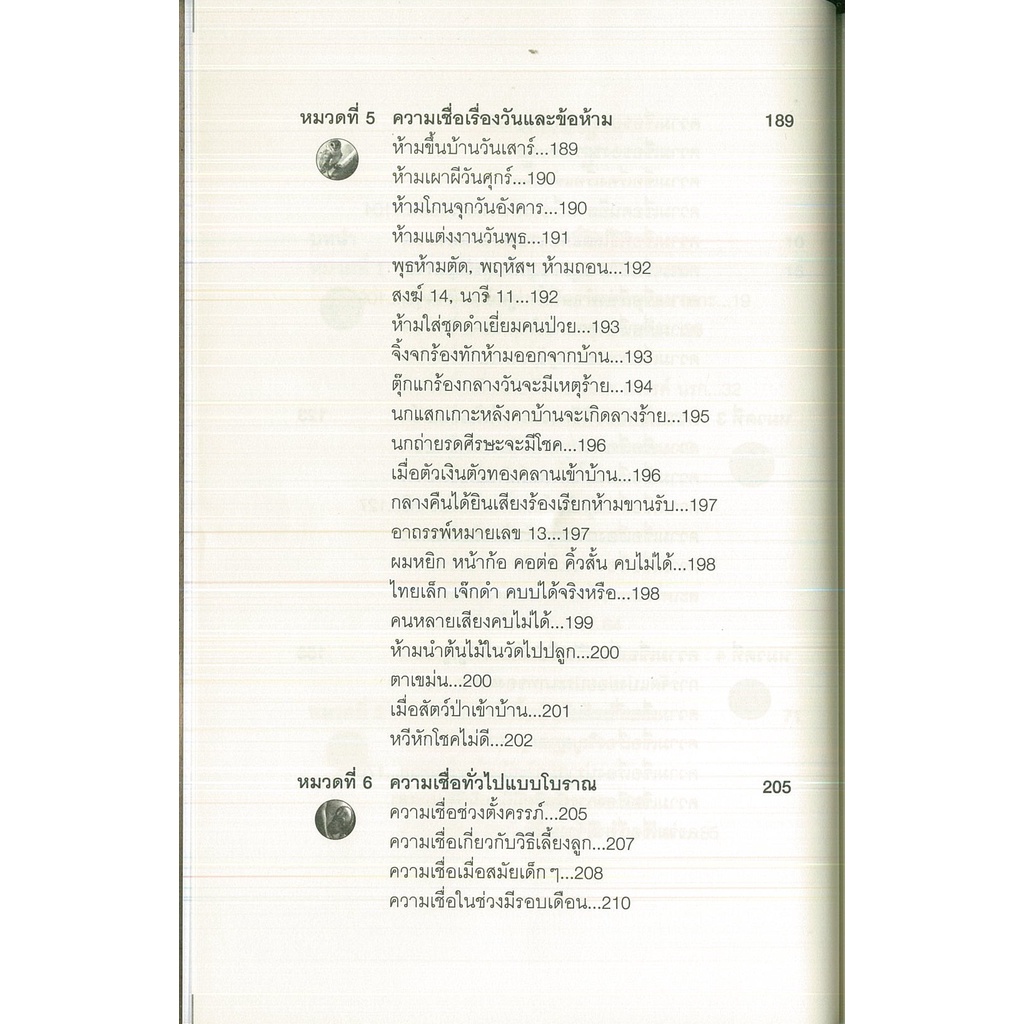 หมวดที่ 5 ความเชื่อเรื่องวันและข้อห้าม 189
ห้ามขึ้นบ้านวันเสาร์...189
ห้ามเผาผีวันศุกร์...190
ห้ามโกนจุกวันอังคาร...190
ห้ามแต่งงานวันพุธ...191
พุธห้ามตัด, พฤหัสฯ ห้ามถอน...192
สงฆ์ 14, นารี 11...192
ห้ามใส่ชุดดำเยี่ยมคนป่วย...193
จิ้งจกร้องทักห้ามออกจากบ้าน...193
ตุ๊กแกร้องกลางวันจะมีเหตุร้าย...194
นกแสกเกาะหลังคาบ้านจะเกิดลางร้าย...195
นกถ่ายรดศีรษะจะมีโชค...196
เมื่อตัวเงินตัวทองคลานเข้าบ้าน...196
กลางคืนได้ยินเสียงร้องเรียกห้ามขานรับ...197
อาถรรพ์หมายเลข 13...197
ผมหยิก หน้าก้อ คอต่อ คิ้วสั้น คบไม่ได้...198
ไทยเล็ก เจ๊กดำ คบบ่ได้จริงหรือ...198
คนหลายเสียงคบไม่ได้...199
ห้ามนำต้นไม้ในวัดไปปลูก...200
ตาเขม่น...200
เมื่อสัตว์ป่าเข้าบ้าน...201
หวีหักโชคไม่ดี...202
หมวดที่ 6 ความเชื่อทั่วไปแบบโบราณ 205
ความเชื่อช่วงตั้งครรภ์...205
ความเชื่อเกี่ยวกับวิธีเลี้ยงลูก...207
ความเชื่อเมื่อสมัยเด็กๆ...208
ความเชื่อในช่วงมีรอบเดือน...210